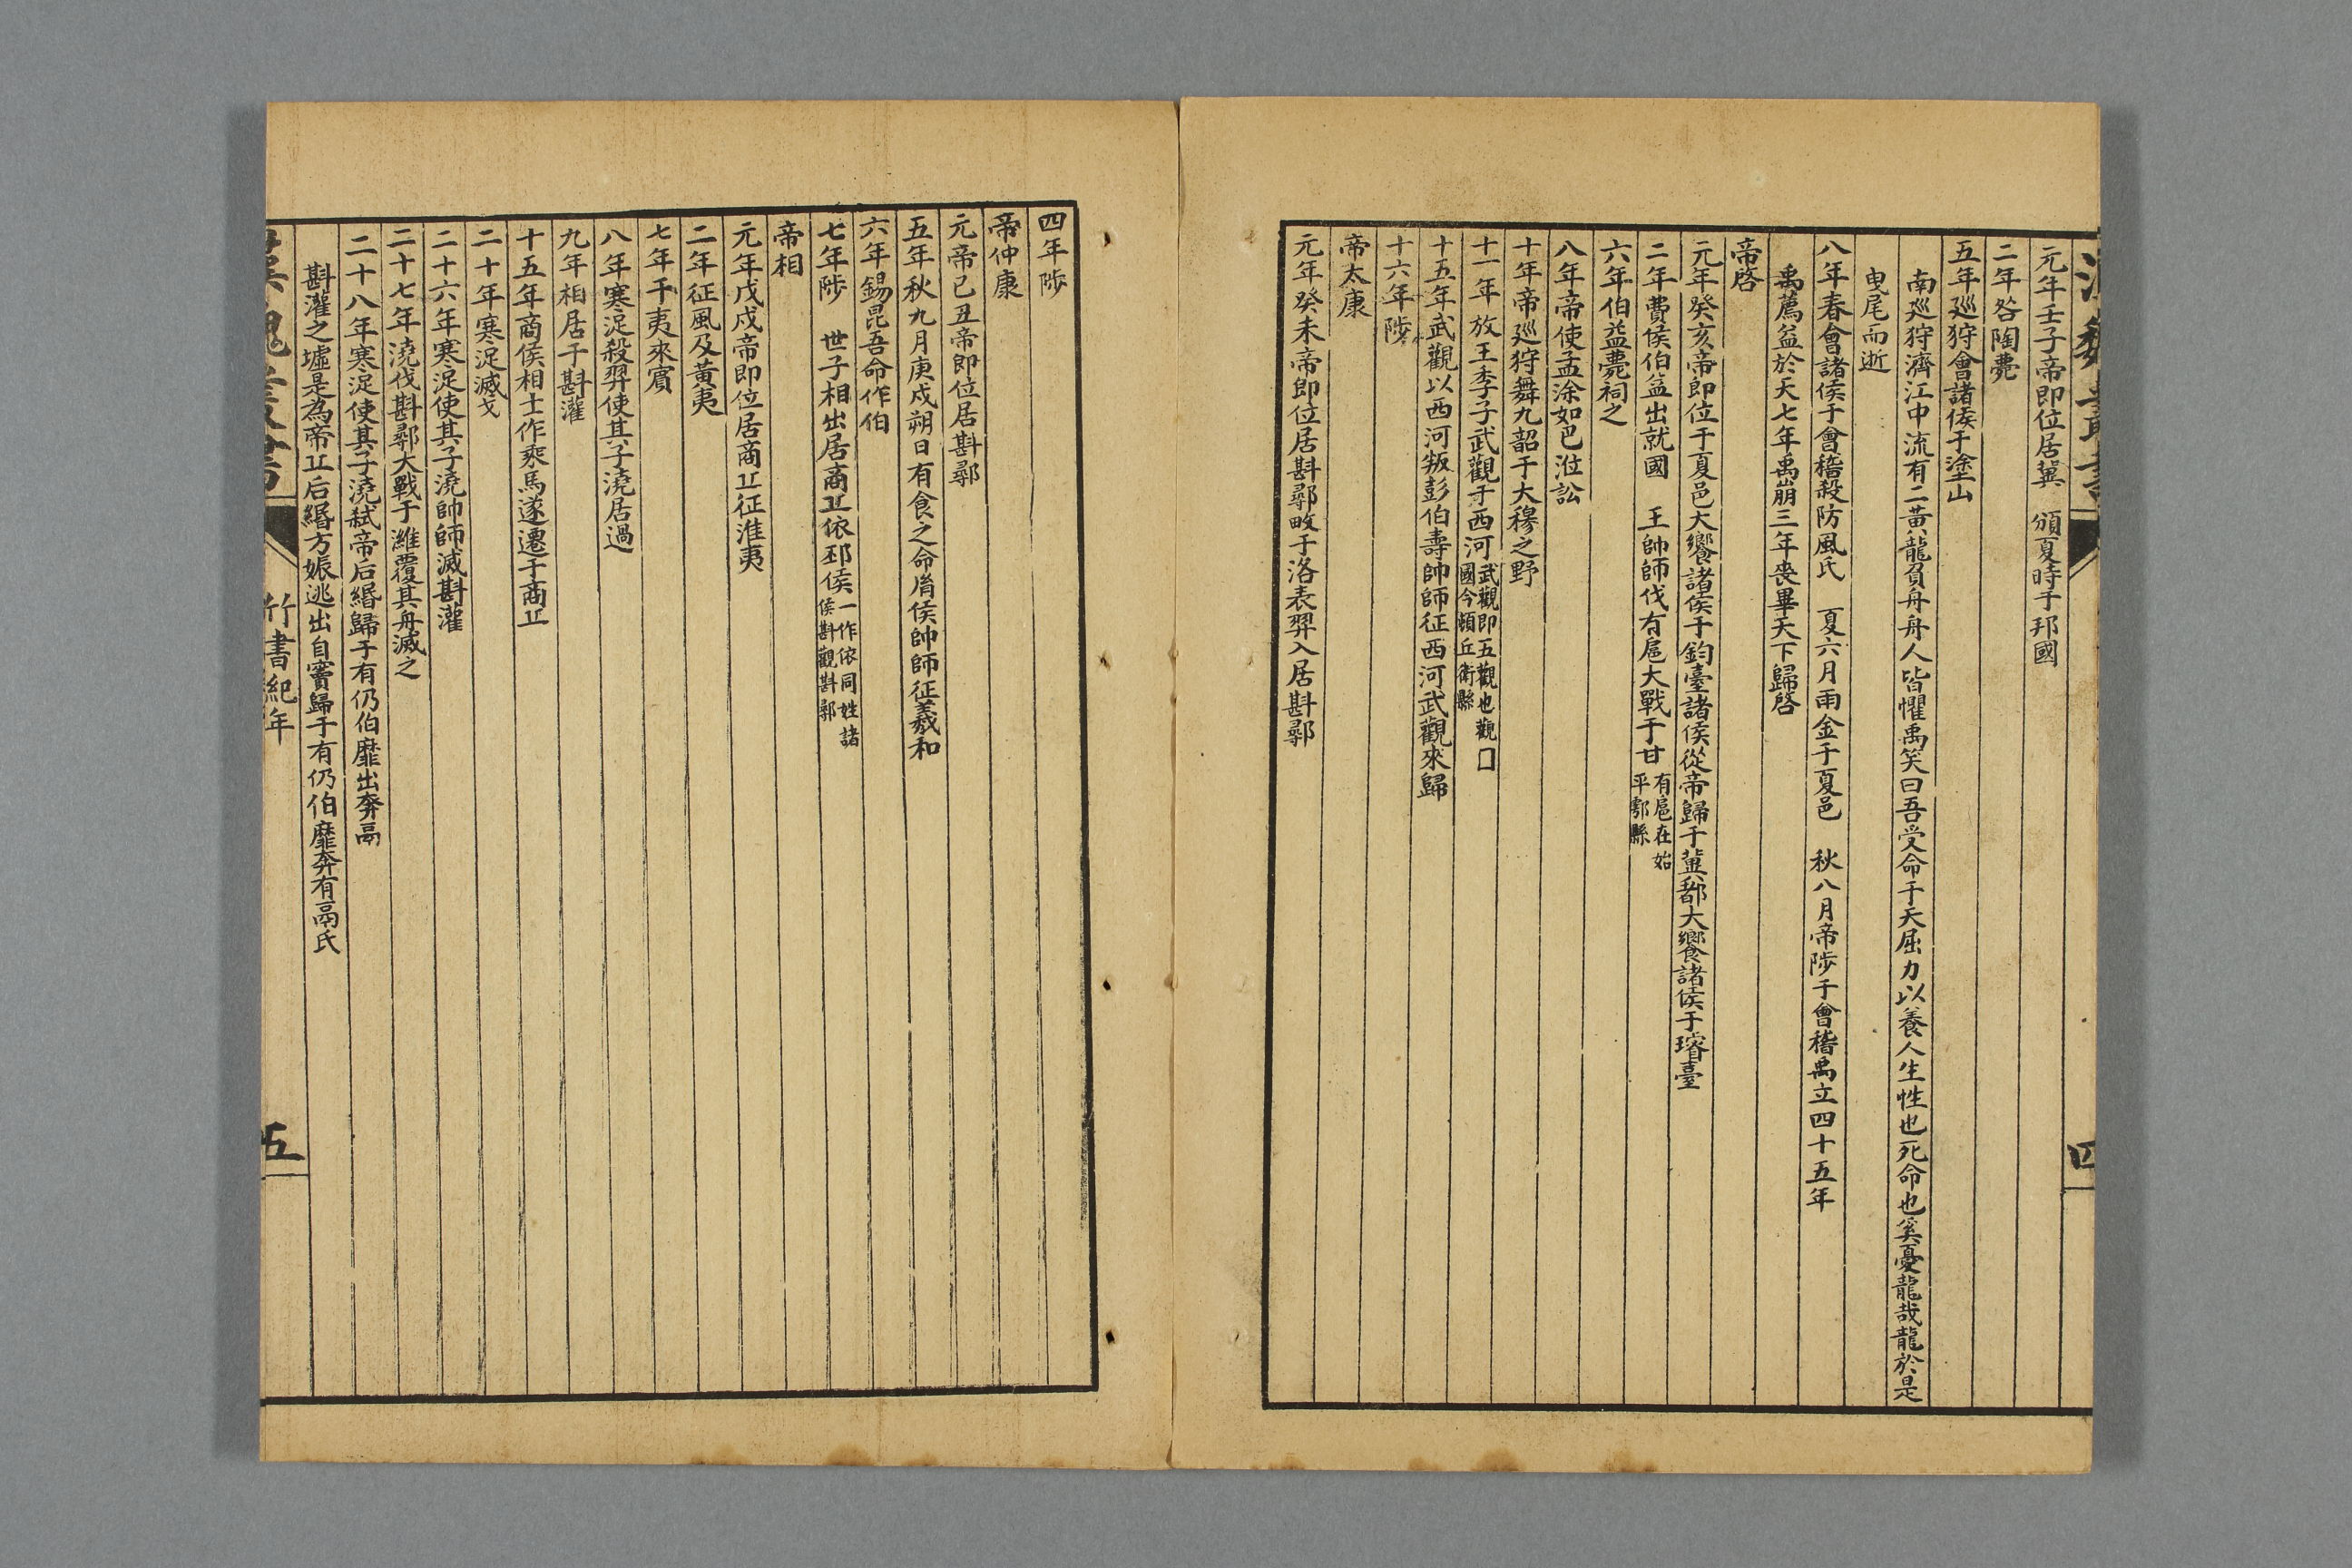 漢魏叢書
四
元年壬子帝即位居冀　頒夏時于邦國
二年咎陶薨
五年廵狩會諸侯于塗山
南廵狩濟江中流有二黃龍負舟舟人皆懼禹笑曰吾受命于天屈力以養人生性也死命也奚憂龍哉龍於是
曳尾而逝
八年春會諸侯于會稽殺防風氏　夏六月雨金于夏邑　秋八月帝陟于會稽禹立四十五年
禹薦益於天七年禹崩三年喪畢天下歸啓
帝啓
元年癸亥帝即位于夏邑大饗諸侯于鈞臺諸侯從帝歸于冀都大饗諸侯于璿臺
二年費侯伯益出就國　王帥師伐有扈大戰于甘有扈在始平鄠縣
六年伯益薨祠之
八年帝使孟涂如巴涖訟
十年帝廵狩舞九韶于大穆之野
十一年放王季子武觀于西河武觀即五觀也觀囗國今頓丘衛縣
十五年武觀以西河叛彭伯壽帥師征西河武觀來歸
十六年陟
帝太康
元年癸未帝即位居斟鄩畋于洛表羿入居斟鄩
四年陟
帝仲康
元帝已丑帝即位居斟鄩
五年秋九月庚戌朔日有食之命胤侯帥師征羲和
六年錫昆吾命作伯
七年陟　世子相出居商丘依邳侯一作依同姓諸侯斟觀斟鄩
帝相
元年戊戌帝即位居商丘征淮夷
二年征風及黃夷
七年于夷來賓
八年寒浞殺羿使其子澆居過
九年相居于斟灌
十五年商侯相士作乘馬遂遷于商丘
二十年寒浞滅戈
二十六年寒浞使其子澆帥師滅斟灌
二十七年澆伐斟鄩大戰于濰覆其舟滅之
二十八年寒浞使其子澆弒帝后緡歸于有仍伯靡出奔鬲
斟灌之墟是為帝丘后緡方娠逃出自竇歸于有仍伯靡奔有鬲氏
漢魏叢書
竹書紀年
五